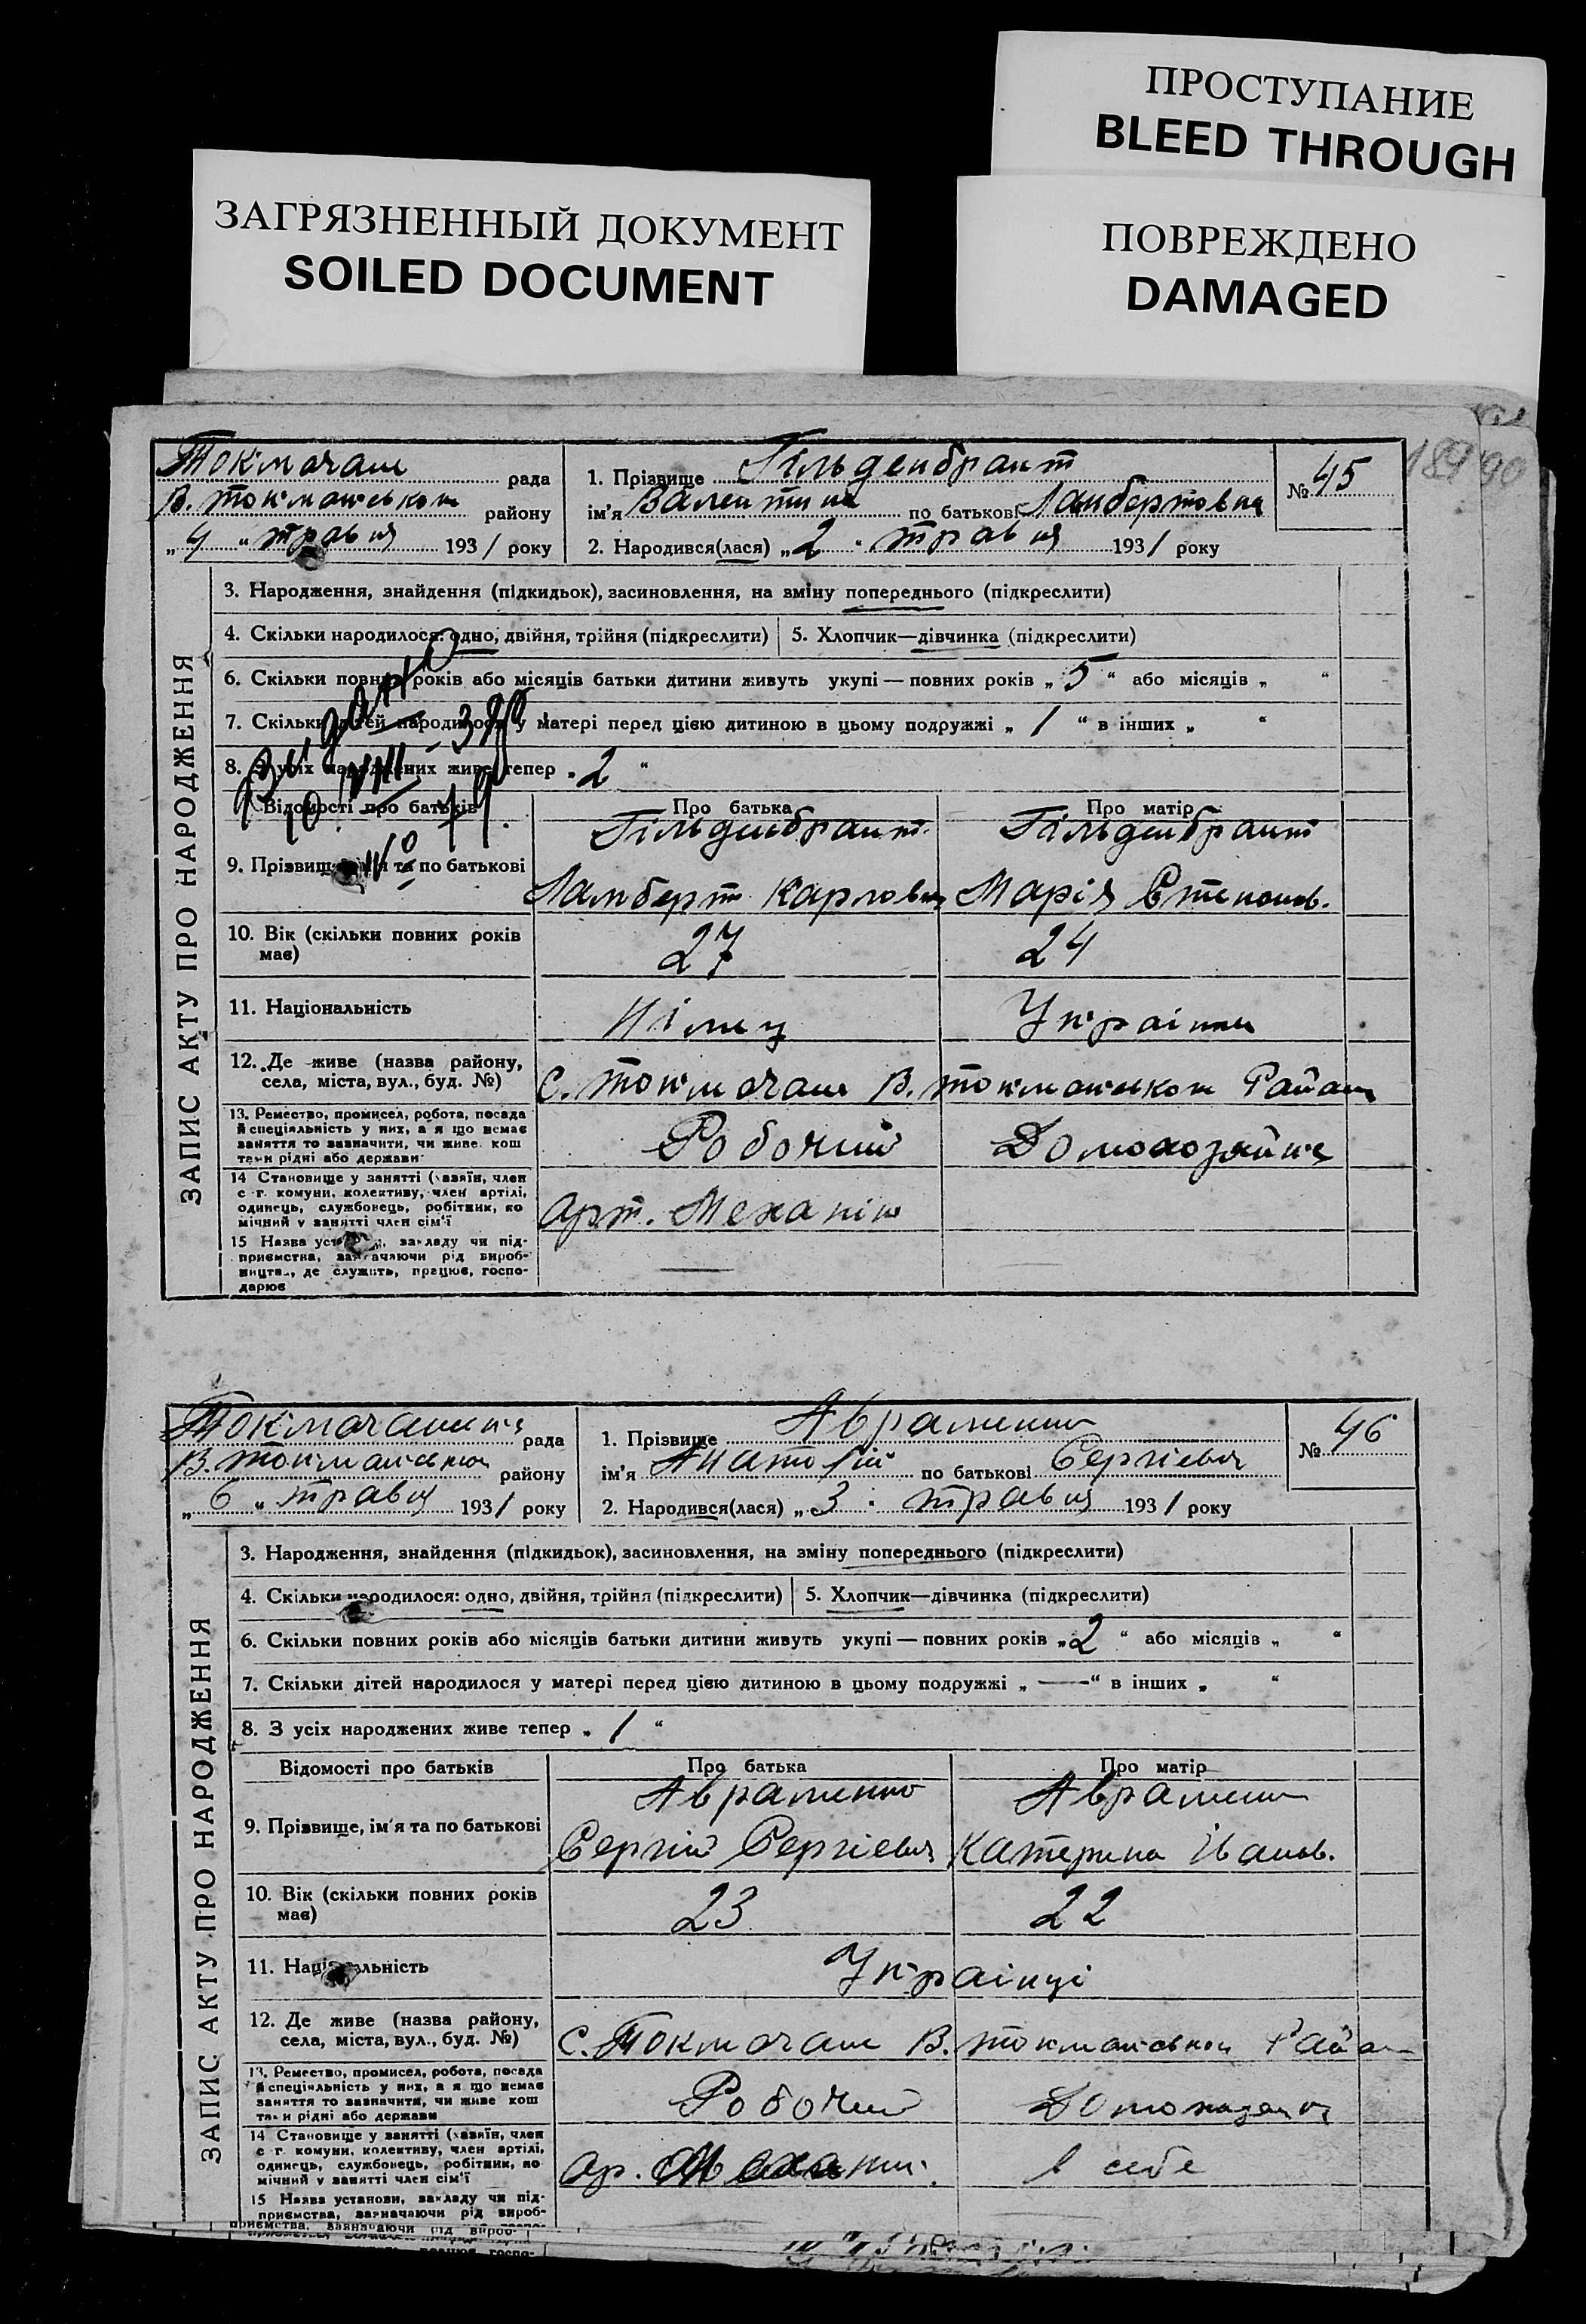 ПРОСТУПАНИЕ
BLEED THROUGH
ЗАГРЯЗНЕННЫЙ ДОКУМЕНТ
SOILED DOCUMENT
ПОВРЕЖДЕНО
DAMAGED
189 90
Токмачаш рада
В. Токмацьком району
" 4 " травня 1931 року
1. Прізвище Гільденбрант
ім'я Валентина по батькові Ламбертовна
№ 45
2. Народився(лася) " 2 " травня 1931 року
ЗАПИС АКТУ ПРО НАРОДЖЕННЯ
3. Народження, знайдення (підкидьок), засиновлення, на зміну попереднього (підкреслити)
4. Скільки народилося: одно, двійня, трійня (підкреслити) 5. Хлопчик—дівчинка (підкреслити)
6. Скільки повних років або місяців батьки дитини живуть укупі — повних років " 5 " або місяців " "
7. Скільки дітей народилося у матері перед цією дитиною в цьому подружжі " 1 " в інших " "
8. З усіх народжених живе тепер " 2 "
Відомості про батьків Про батька Про матір
Гільденбрант Гільденбрант
9. Прізвище, ім'я та по батькові
Ламберт Карлович Марія Степанов.
10. Вік (скільки повних років має) 27 24
11. Національність Німец Українка
12. Де живе (назва району, села, міста, вул., буд. №) С. Токмачаш В. Токмацьком Район
13. Ремество, промисел, робота, посада й спеціяльність у них, а я що немає заняття то зазначити, чи живе кош тами рідні або держави Робочий Домохозяйка
14 Становище у занятті (хазяїн, член с г. комуни, колективу, член артілі, одинець, службовець, робітник, помічний у занятті член сім'ї Арт. Механік
15 Назва установи, закладу чи підприємства, зазначаючи рід виробництва, де служить, працює, господарює —
Токмачанська рада
В. Токмацьком району
" 6 " травня 1931 року
1. Прізвище Авраменко
ім'я Анатолій по батькові Сергієвич
№ 46
2. Народився(лася) " 3 " травня 1931 року
ЗАПИС АКТУ ПРО НАРОДЖЕННЯ
3. Народження, знайдення (підкидьок), засиновлення, на зміну попереднього (підкреслити)
4. Скільки народилося: одно, двійня, трійня (підкреслити) 5. Хлопчик—дівчинка (підкреслити)
6. Скільки повних років або місяців батьки дитини живуть укупі — повних років " 2 " або місяців " "
7. Скільки дітей народилося у матері перед цією дитиною в цьому подружжі " — " в інших " "
8. З усіх народжених живе тепер " 1 "
Відомості про батьків Про батька Про матір
Авраменко Авраменко
9. Прізвище, ім'я та по батькові
Сергій Сергієвич Катерина Іванов.
10. Вік (скільки повних років має) 23 22
11. Національність Українці
12. Де живе (назва району, села, міста, вул., буд. №) С. Токмачаш В. Токмацьком Район
13. Ремество, промисел, робота, посада й спеціяльність у них, а я що немає заняття то зазначити, чи живе кош тами рідні або держави Робочий
14 Становище у занятті (хазяїн, член с г. комуни, колективу, член артілі, одинець, службовець, робітник, помічний у занятті член сім'ї Ар. в себе
15 Назва установи, закладу чи підприємства, зазначаючи рід вироб-